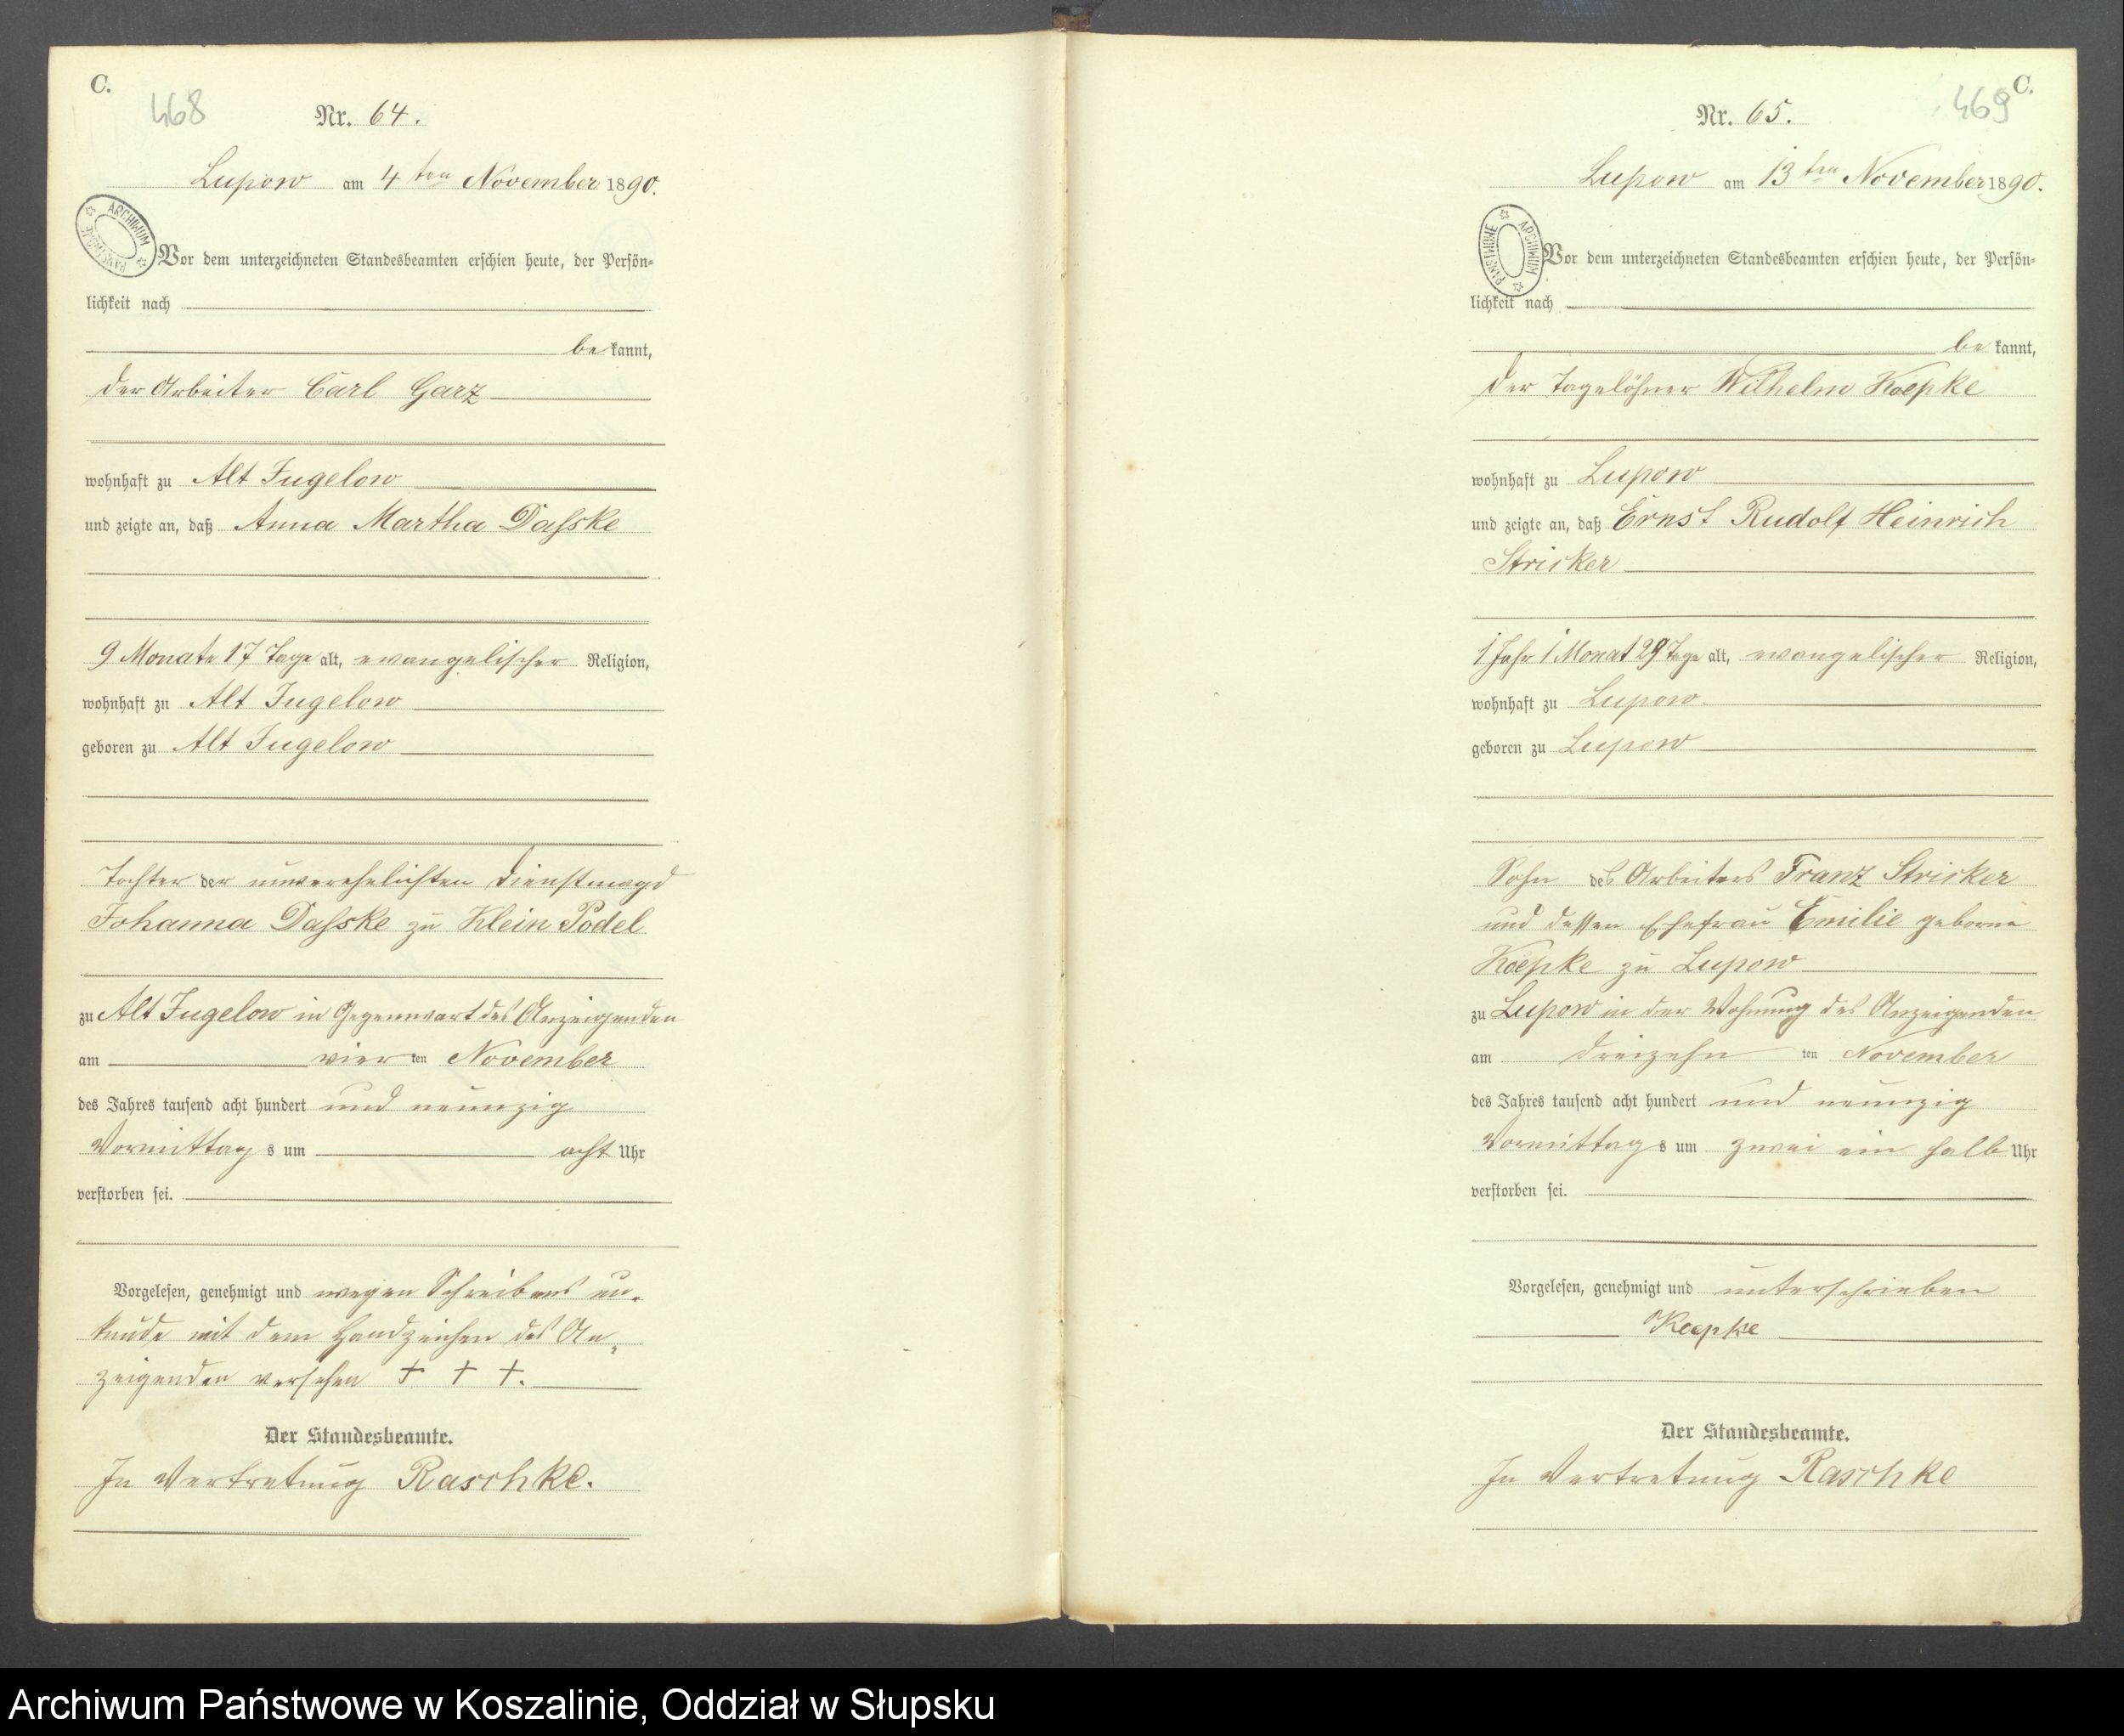 C.
468
Nr. 64.
Lupow am 4ten November 1890.
ARCHIWUM PAŃSTWOWE
Vor dem unterzeichneten Standesbeamten erschien heute, der Persön-
lichkeit nach
be kannt,
der Arbeiter Carl Garz
wohnhaft zu Alt Jugelow
und zeigte an, daß Anna Martha Daſske
9 Monate 17 Tage alt, evangelischer Religion,
wohnhaft zu Alt Jugelow
geboren zu Alt Jugelow
Tochter der unverehelichten Dienstmagd
Johanna Daſske zu Klein Podel
zu Alt Jugelow in Gegenwart des Anzeigenden
am vier ten November
des Jahres tausend acht hundert und neunzig
Vormittag s um acht Uhr
verstorben sei.
Vorgelesen, genehmigt und wegen Schreibens un-
kunde mit dem Handzeichen des An-
zeigenden versehen + + +.
Der Standesbeamte.
In Vertretung Raschke.
C.
469
Nr. 65.
Lupow am 13ten November 1890.
ARCHIWUM PAŃSTWOWE
Vor dem unterzeichneten Standesbeamten erschien heute, der Persön-
lichkeit nach
be kannt,
der Tagelöhner Wilhelm Koepke
wohnhaft zu Lupow
und zeigte an, daß Ernst Rudolf Heinrich
Stricker
1 Jahr 1 Monat 29 Tage alt, evangelischer Religion,
wohnhaft zu Lupow
geboren zu Lupow
Sohn des Arbeiters Franz Stricker
und dessen Ehefrau Emilie geborne
Koepke zu Lupow
zu Lupow in der Wohnung des Anzeigenden
am dreizehn ten November
des Jahres tausend acht hundert und neunzig
Vormittag s um zwei ein halb Uhr
verstorben sei.
Vorgelesen, genehmigt und unterschrieben
Keepke
Der Standesbeamte.
In Vertretung Raschke
Archiwum Państwowe w Koszalinie, Oddział w Słupsku